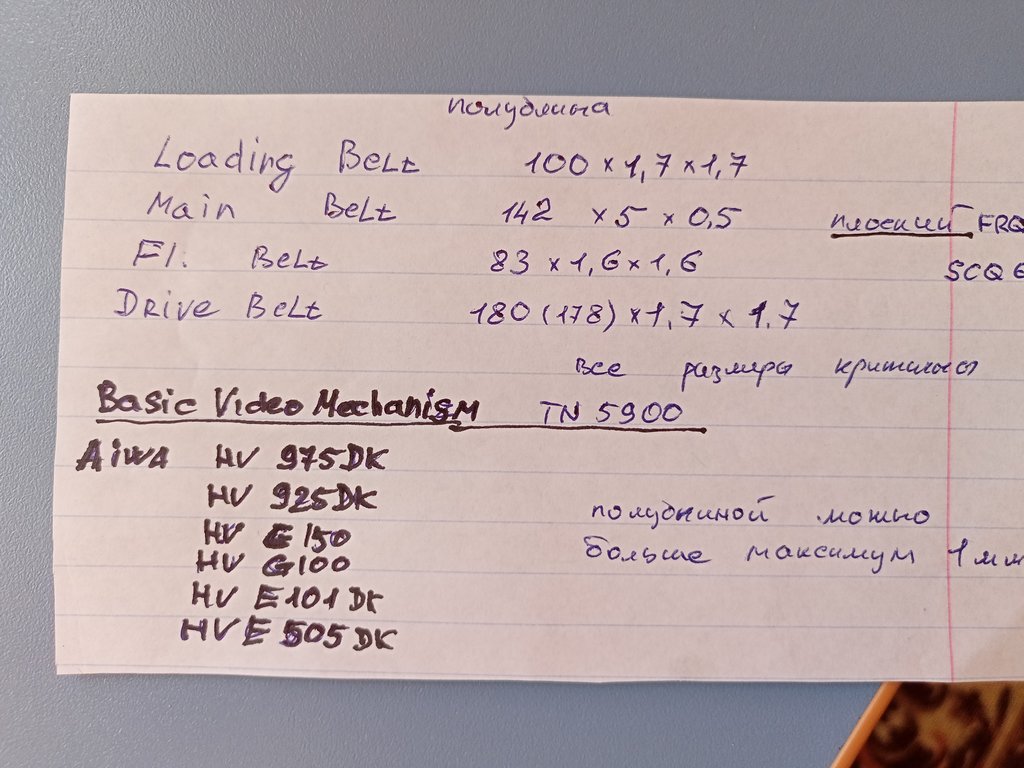 полудлина
Loading Belt 100 x 1,7 x 1,7
Main Belt 142 x 5 x 0,5 плоский FRQ
Fl. Belt 83 x 1,6 x 1,6 SCQ 6
Drive Belt 180 (178) x 1,7 x 1.7
все размеры
Basic Video Mechanism TN 5900
Aiwa HV 975 DK
HV 925 DK
HV G 150
HV G100
HV E101 DK
HV E 505 DK
полудлиной можно
больше максимум 1 мм